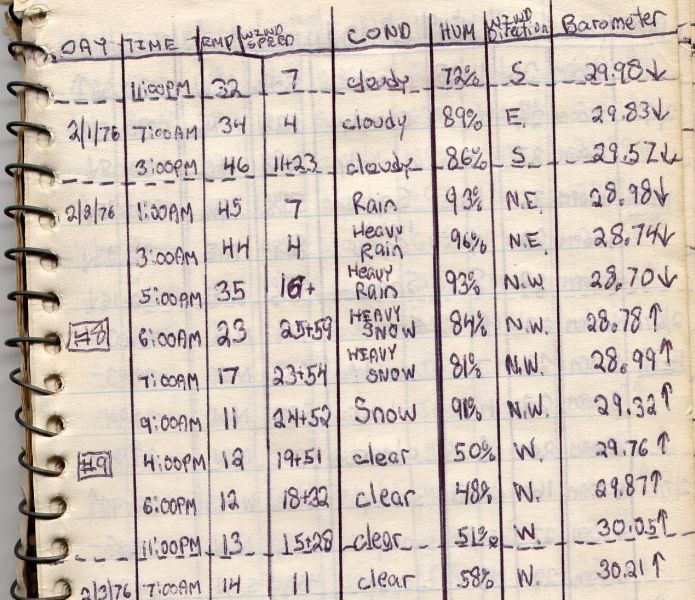 DAY TIME TEMP WIND SPEED COND HUM WIND Direction Barometer
11:00PM 32 7 cloudy 72% S 29.98↓
2/1/76 7:00AM 34 4 cloudy 89% E. 29.83↓
3:00PM 46 11+23 cloudy 86% S 29.57↓
2/2/76 1:00AM 45 7 Rain 93% N.E. 28.98↓
3:00AM 44 4 Heavy Rain 96% N.E. 28.74↓
5:00AM 35 16+ Heavy Rain 93% N.W. 28.70↓
#8 6:00AM 23 25+59 HEAVY SNOW 84% N.W. 28.78↑
7:00AM 17 23+54 HEAVY SNOW 81% N.W. 28.99↑
9:00AM 11 24+52 Snow 91% N.W. 29.32↑
#9 4:00PM 12 19+51 clear 50% W. 29.76↑
6:00PM 12 18+32 clear 48% W. 29.87↑
11:00PM 13 15+28 clear 51% W. 30.05↑
2/3/76 7:00AM 14 11 clear 58% W. 30.21↑